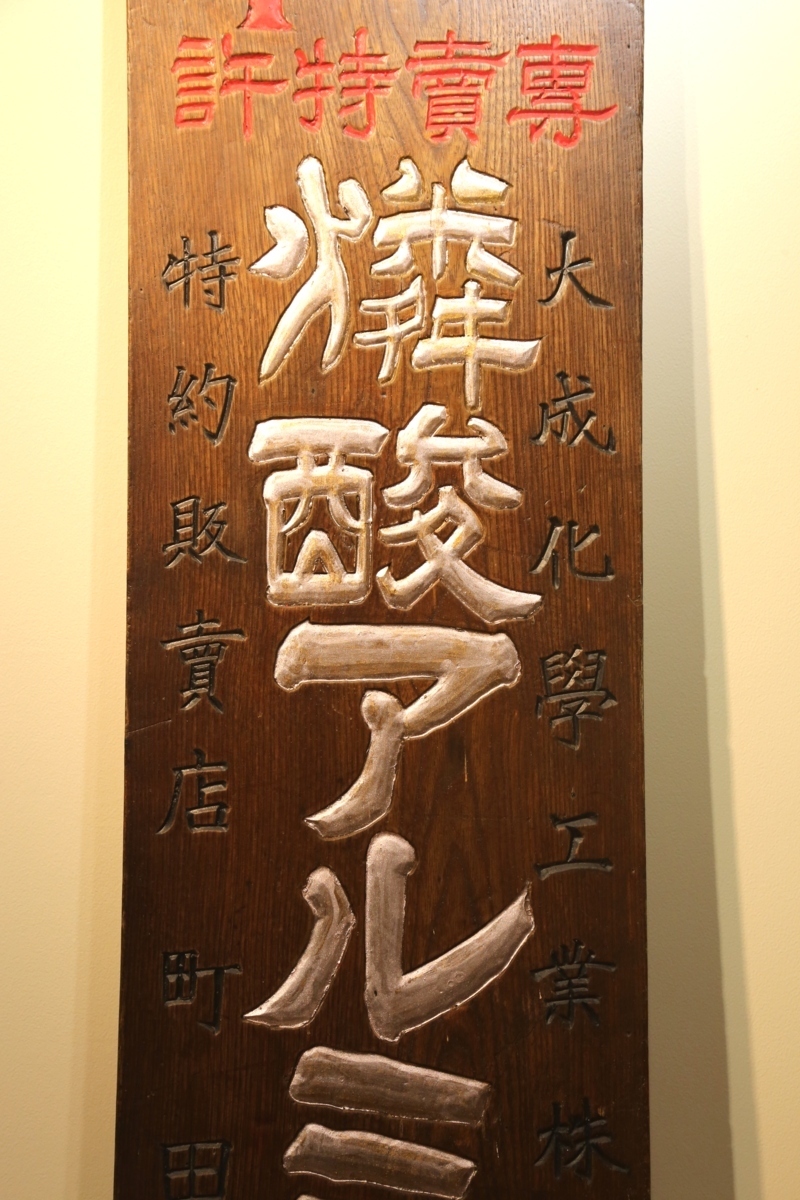 專賣特許
大成化學工業株
燐酸アルミ
特約販賣店 町田